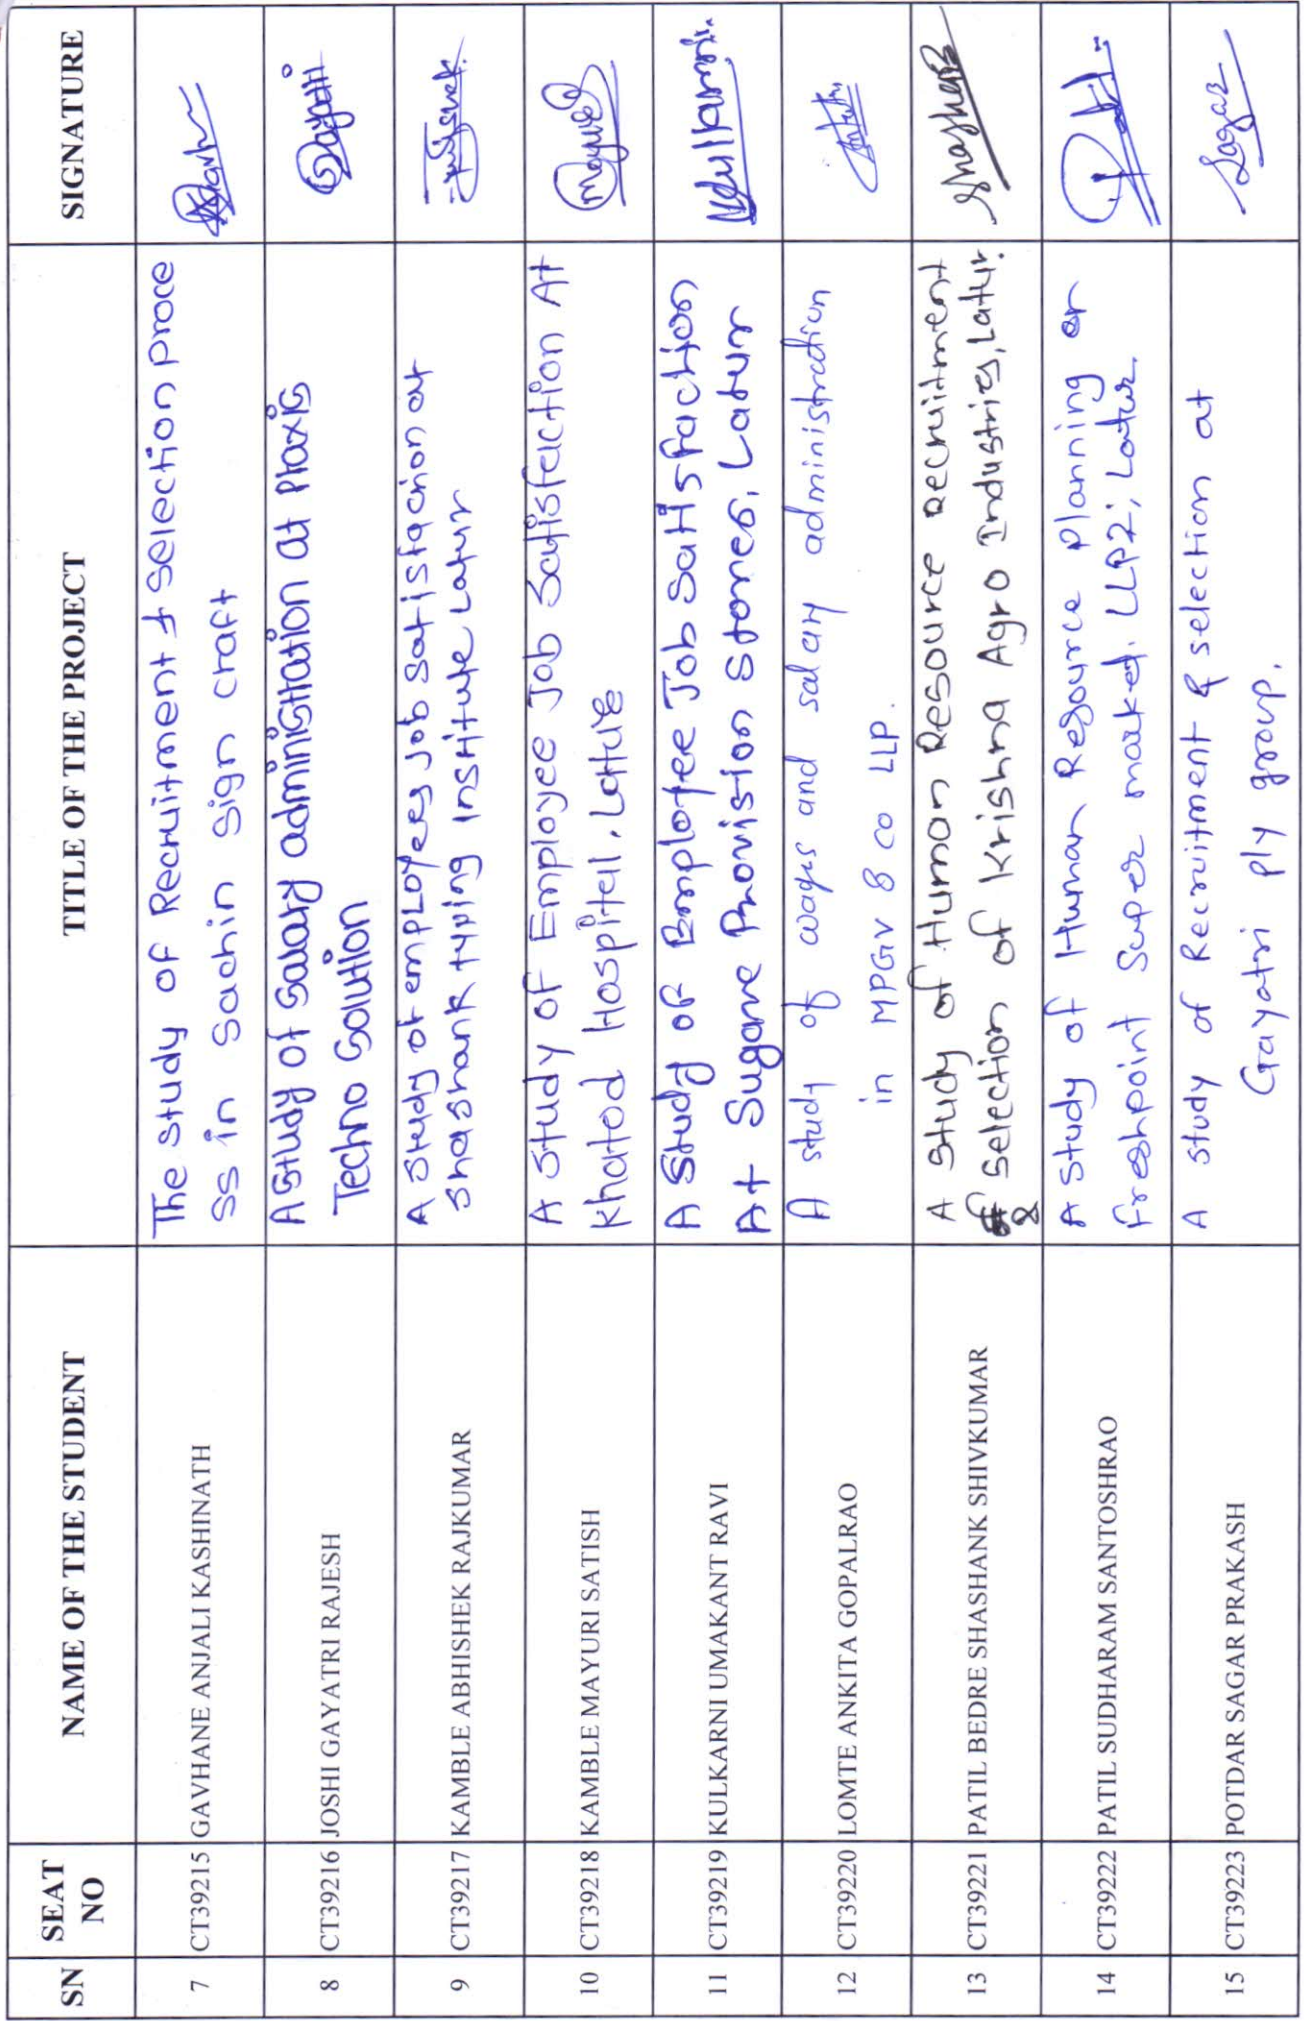 SN SEAT NO NAME OF THE STUDENT TITLE OF THE PROJECT SIGNATURE
7 CT39215 GAVHANE ANJALI KASHINATH The study of Recruitment & selection proce
ss in Sachin sign craft
8 CT39216 JOSHI GAYATRI RAJESH A study of salary administration at Plaxis
Techno Solution Gayatri
9 CT39217 KAMBLE ABHISHEK RAJKUMAR A study of employees job satisfacrion at
shashank typing Institute Latur
10 CT39218 KAMBLE MAYURI SATISH A study of Employee Job Satisfaction At
Khatod Hospital, Latur Mayuri
11 CT39219 KULKARNI UMAKANT RAVI A Study of Employee Job Satisfaction
At Sugane Provision Stores, Latur Ukulkarni
12 CT39220 LOMTE ANKITA GOPALRAO A study of wages and salary administration
in MPGV & co LLP.
13 CT39221 PATIL BEDRE SHASHANK SHIVKUMAR A study of Human Resource recruitment
& selection of Krishna Agro Industries, Latur. Shashank
14 CT39222 PATIL SUDHARAM SANTOSHRAO A study of Human Resource planning or
Freshpoint Super market, Latur
15 CT39223 POTDAR SAGAR PRAKASH A study of Recruitment & selection at
Gayatri ply group. Sagar